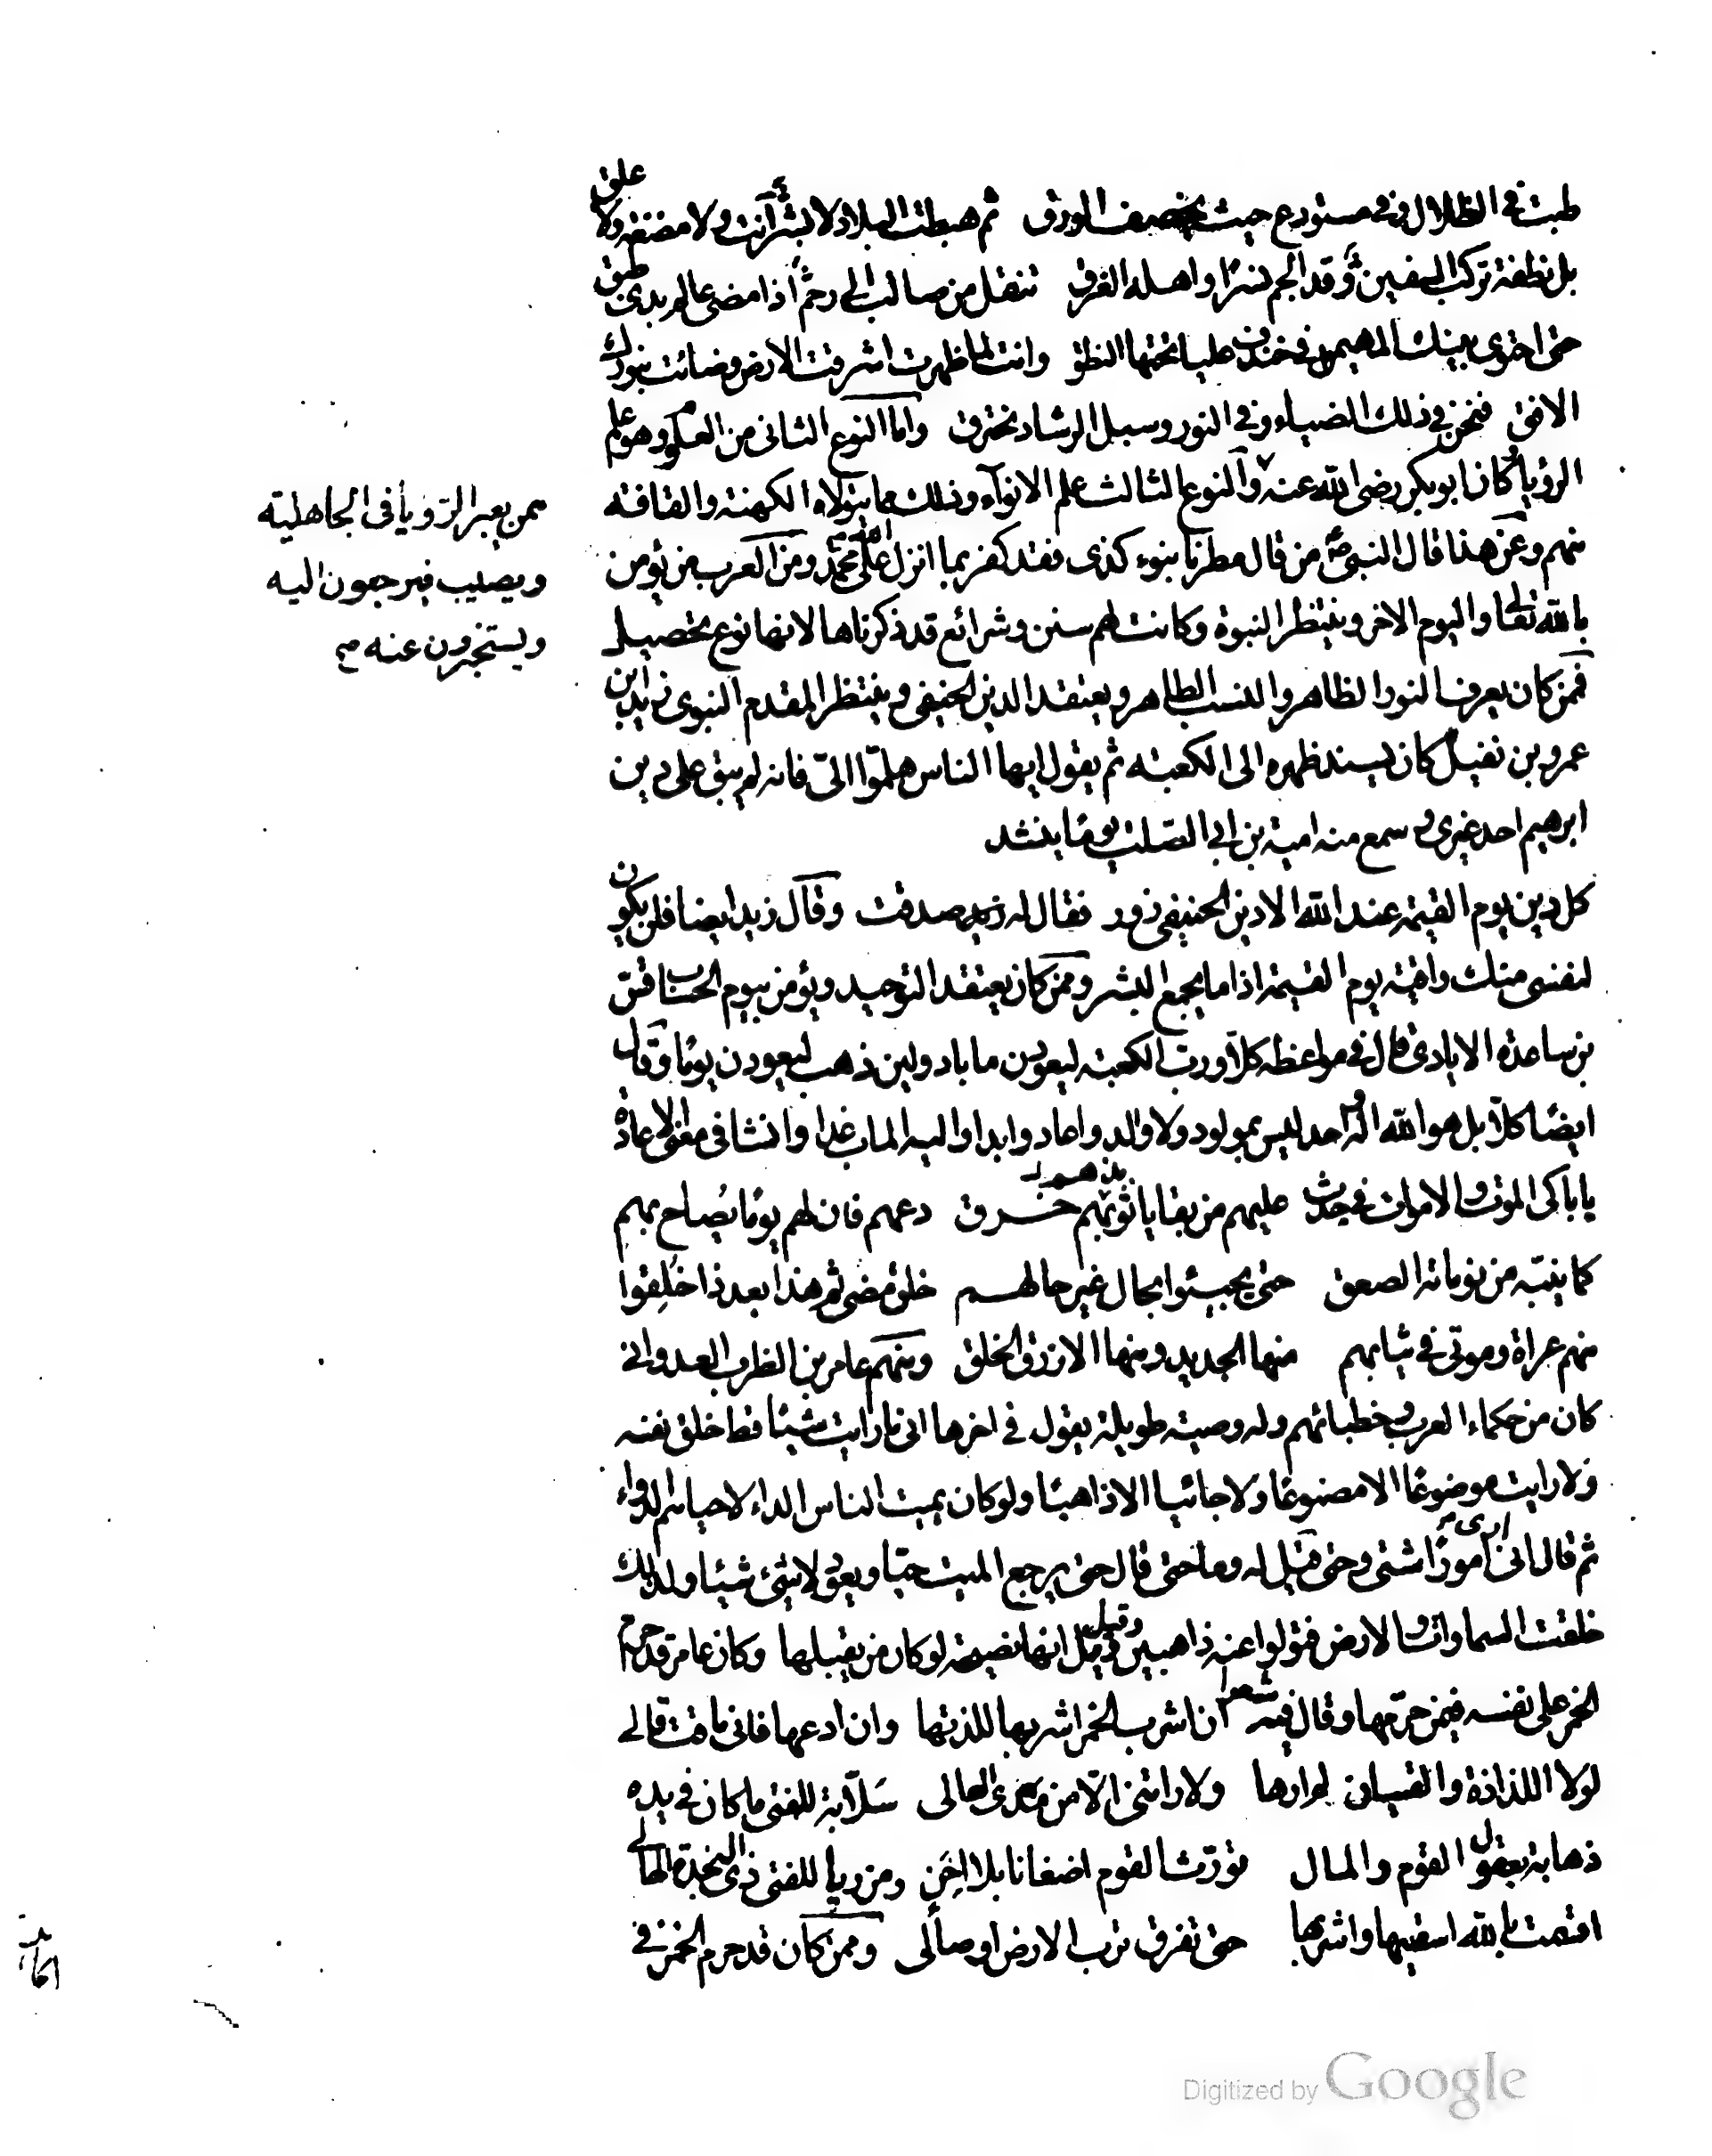 طبت في الظلال وفي مستودع حيث يخصف الورق ثم هبطت البلاد لا بشر أنت ولا مضغة ولا علق
بل نطفة تركب السفين وقد الجم نسرا واهله الغرق تنقل من صالب الى رحم اذا مضى عالم بدى طبق
حتى احتوى بيتك المهيمن في خندف عليا تحتها النطق وانت لما ظهرت اشرقت الارض وضائت بنورك
الافق فنحن في ذلك الضياء وفي النور وسبل الرشاد نخترق واما النوع الثاني من العلوم وهو علم
الرؤيا وكان ابو بكر رضى الله عنه والنوع الثالث علم الانوآء وذلك مما يتولاه الكهنة والقافة
ممن يعبر الرؤيا في الجاهلية
ويصيب فيرجعون اليه
ويستخبرون عنه صح
منهم وعن هذا قال النبى ص من قال مطرنا بنوء كذى فقد كفر بما انزل الله على محمد ومن العرب من يؤمن
بالله تعالى واليوم الاخر وينتظر النبوة وكانت لهم سنن وشرائع قد ذكرناها لانها نوع تحصيل
فمن كان يعرف النور الظاهر والنسب الطاهر ويعتقد الدين الحنيفى وينتظر المقدم النبوى زيد ابن
عمرو بن نفيل كان يسند ظهره الى الكعبة ثم يقول ايها الناس هلموا الىّ فانه لم يبق على دين
ابرهيم احد غيرى و سمع منه امية بن ابى الصلت يوما ينشد
كل دين يوم القيمة عند الله الا دين الحنيفى زور فقال له زيد صدقت وقال زيد ايضا فلن يكون
لنفسى منك واقية يوم القيمة اذا ما يجمع البشر وممن كان يعتقد التوحيد ويؤمن بيوم الحساب قس
بن ساعدة الايادى قال في مواعظه كلا ورب الكعبة ليعودن ما باد ولين ذهب ليعودن يوما وقال
ايضا كلا بل هو الله اله واحد ليس بمولود ولا والد واعاد وابدا واليه الماب غدا وانشا في معنى الاعادة
يا باكى الموت والاموات في جدث عليهم من بقايا ثوبهم خرق دعهم فان لهم يوما يصاح بهم
كما ينبه من نوماته الصعق حتى يجيئوا بحال غير حالهم خلق مضى ثم هذا بعد ذا خلقوا
منهم عراة وموتى في ثيابهم منها الجديد ومنها الازرق الخلق ومنهم عامر بن الظرب العدوانى
كان من حكماء العرب وخطبائهم وله وصية طويلة يقول في اخرها انى ما رايت شيئا قط خلق نفسه
ولا رايت موضوعا الا مصنوعا ولا جائيا الا ذاهبا ولو كان يميت الناس الداء لاحياهم الدواء
ثم قال انى ارى امورا شتى وحتى قيل له وما حتى قال حتى يرجع الميت حيا ويعود لا شئ شيئا ولذلك
خلقت السماوات والارض فتولوا عنه ذاهبين وقيل انها نصيحة لو كان من يقبلها وكان عامر قد حرم
الخمر على نفسه فيمن حرّمها وقال فيه شعرا ان اشرب الخمر اشربها للذتها وان ادعها فانى ماقت قالى
لولا اللذاذة والقينات لم ارها ولا راتنى الّا من مدى العالى سَلّابة للفتى ما كان في يده
ذهابة بعقول القوم والمال تورّث القوم اضغانا بلا احَنٍ
اقسمت بالله اسقيها واشربها حتى تفرق ترب الارض اوصالى وممن كان قد حرم الخمر في
Digitized by Google